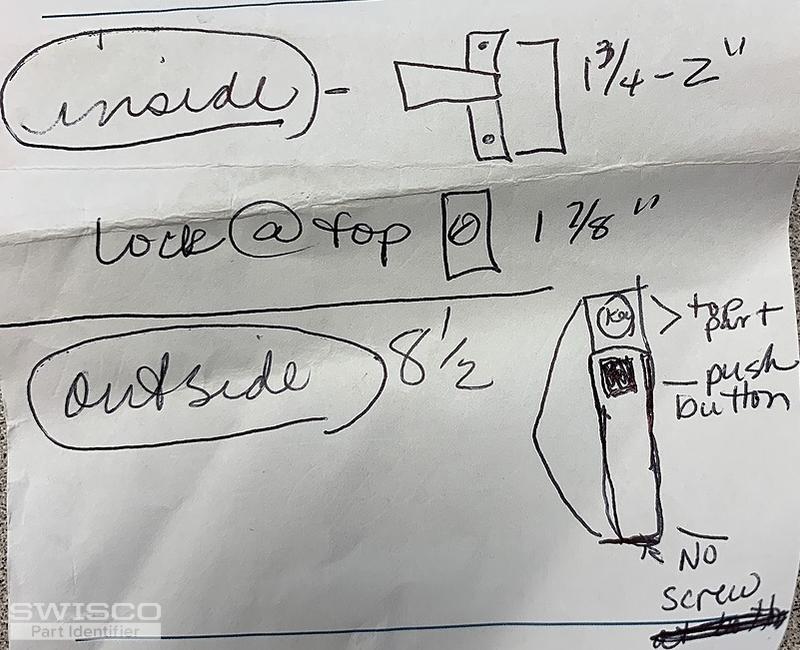 inside - 1 3/4 - 2"
Lock @ top 1 7/8"
outside 8 1/2
Key
top
part
push
button
No
screw
SWISCO
Part Identifier